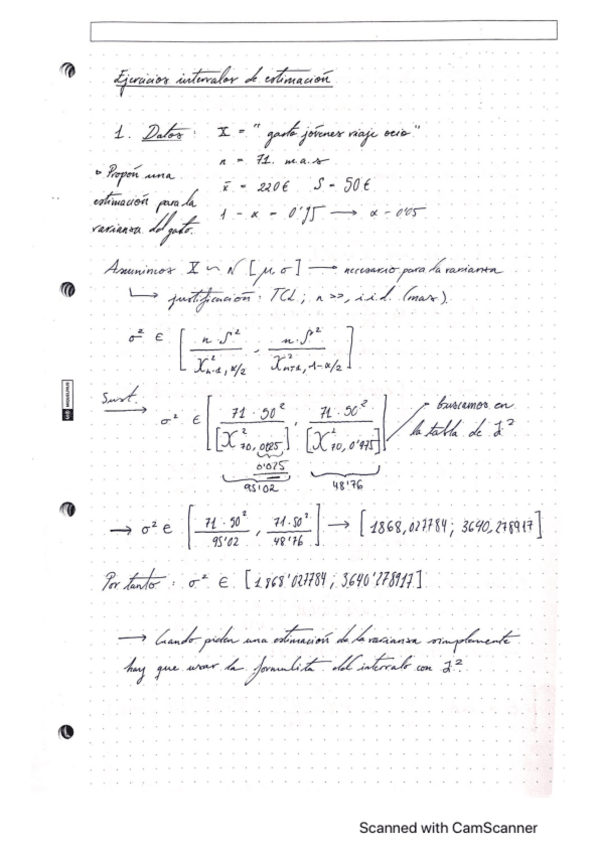 Ejercicios intervalos de estimación
1. Datos: X = "gasto jóvenes viaje ocio"
n = 71. m.a.s
x̄ = 220€ S = 50€
1 - α = 0'95 → α - 0'05
▸ Propón una
estimación para la
varianza del gasto.
Asumimos X ~ N [μ, σ] → necesario para la varianza
↳ justificación: TCL; n >>, i.i.d. (mas).
σ² ∈ [ n · S² / X² n-1, α/2 , n · S² / X² n-1, 1-α/2 ]
Sust.
→ σ² ∈ [ 71 · 50² / [X² 70, 0'025] , 71 · 50² / [X² 70, 0'975] ]
buscamos en
la tabla de X²
0'025
95'02 48'76
→ σ² ∈ [ 71 · 50² / 95'02 , 71 · 50² / 48'76 ] → [1868,027784 ; 3640,278917]
Por tanto: σ² ∈ [1868'027784 ; 3640'278917]
→ Cuando piden una estimación de la varianza simplemente
hay que usar la formulita del intervalo con X².
Scanned with CamScanner